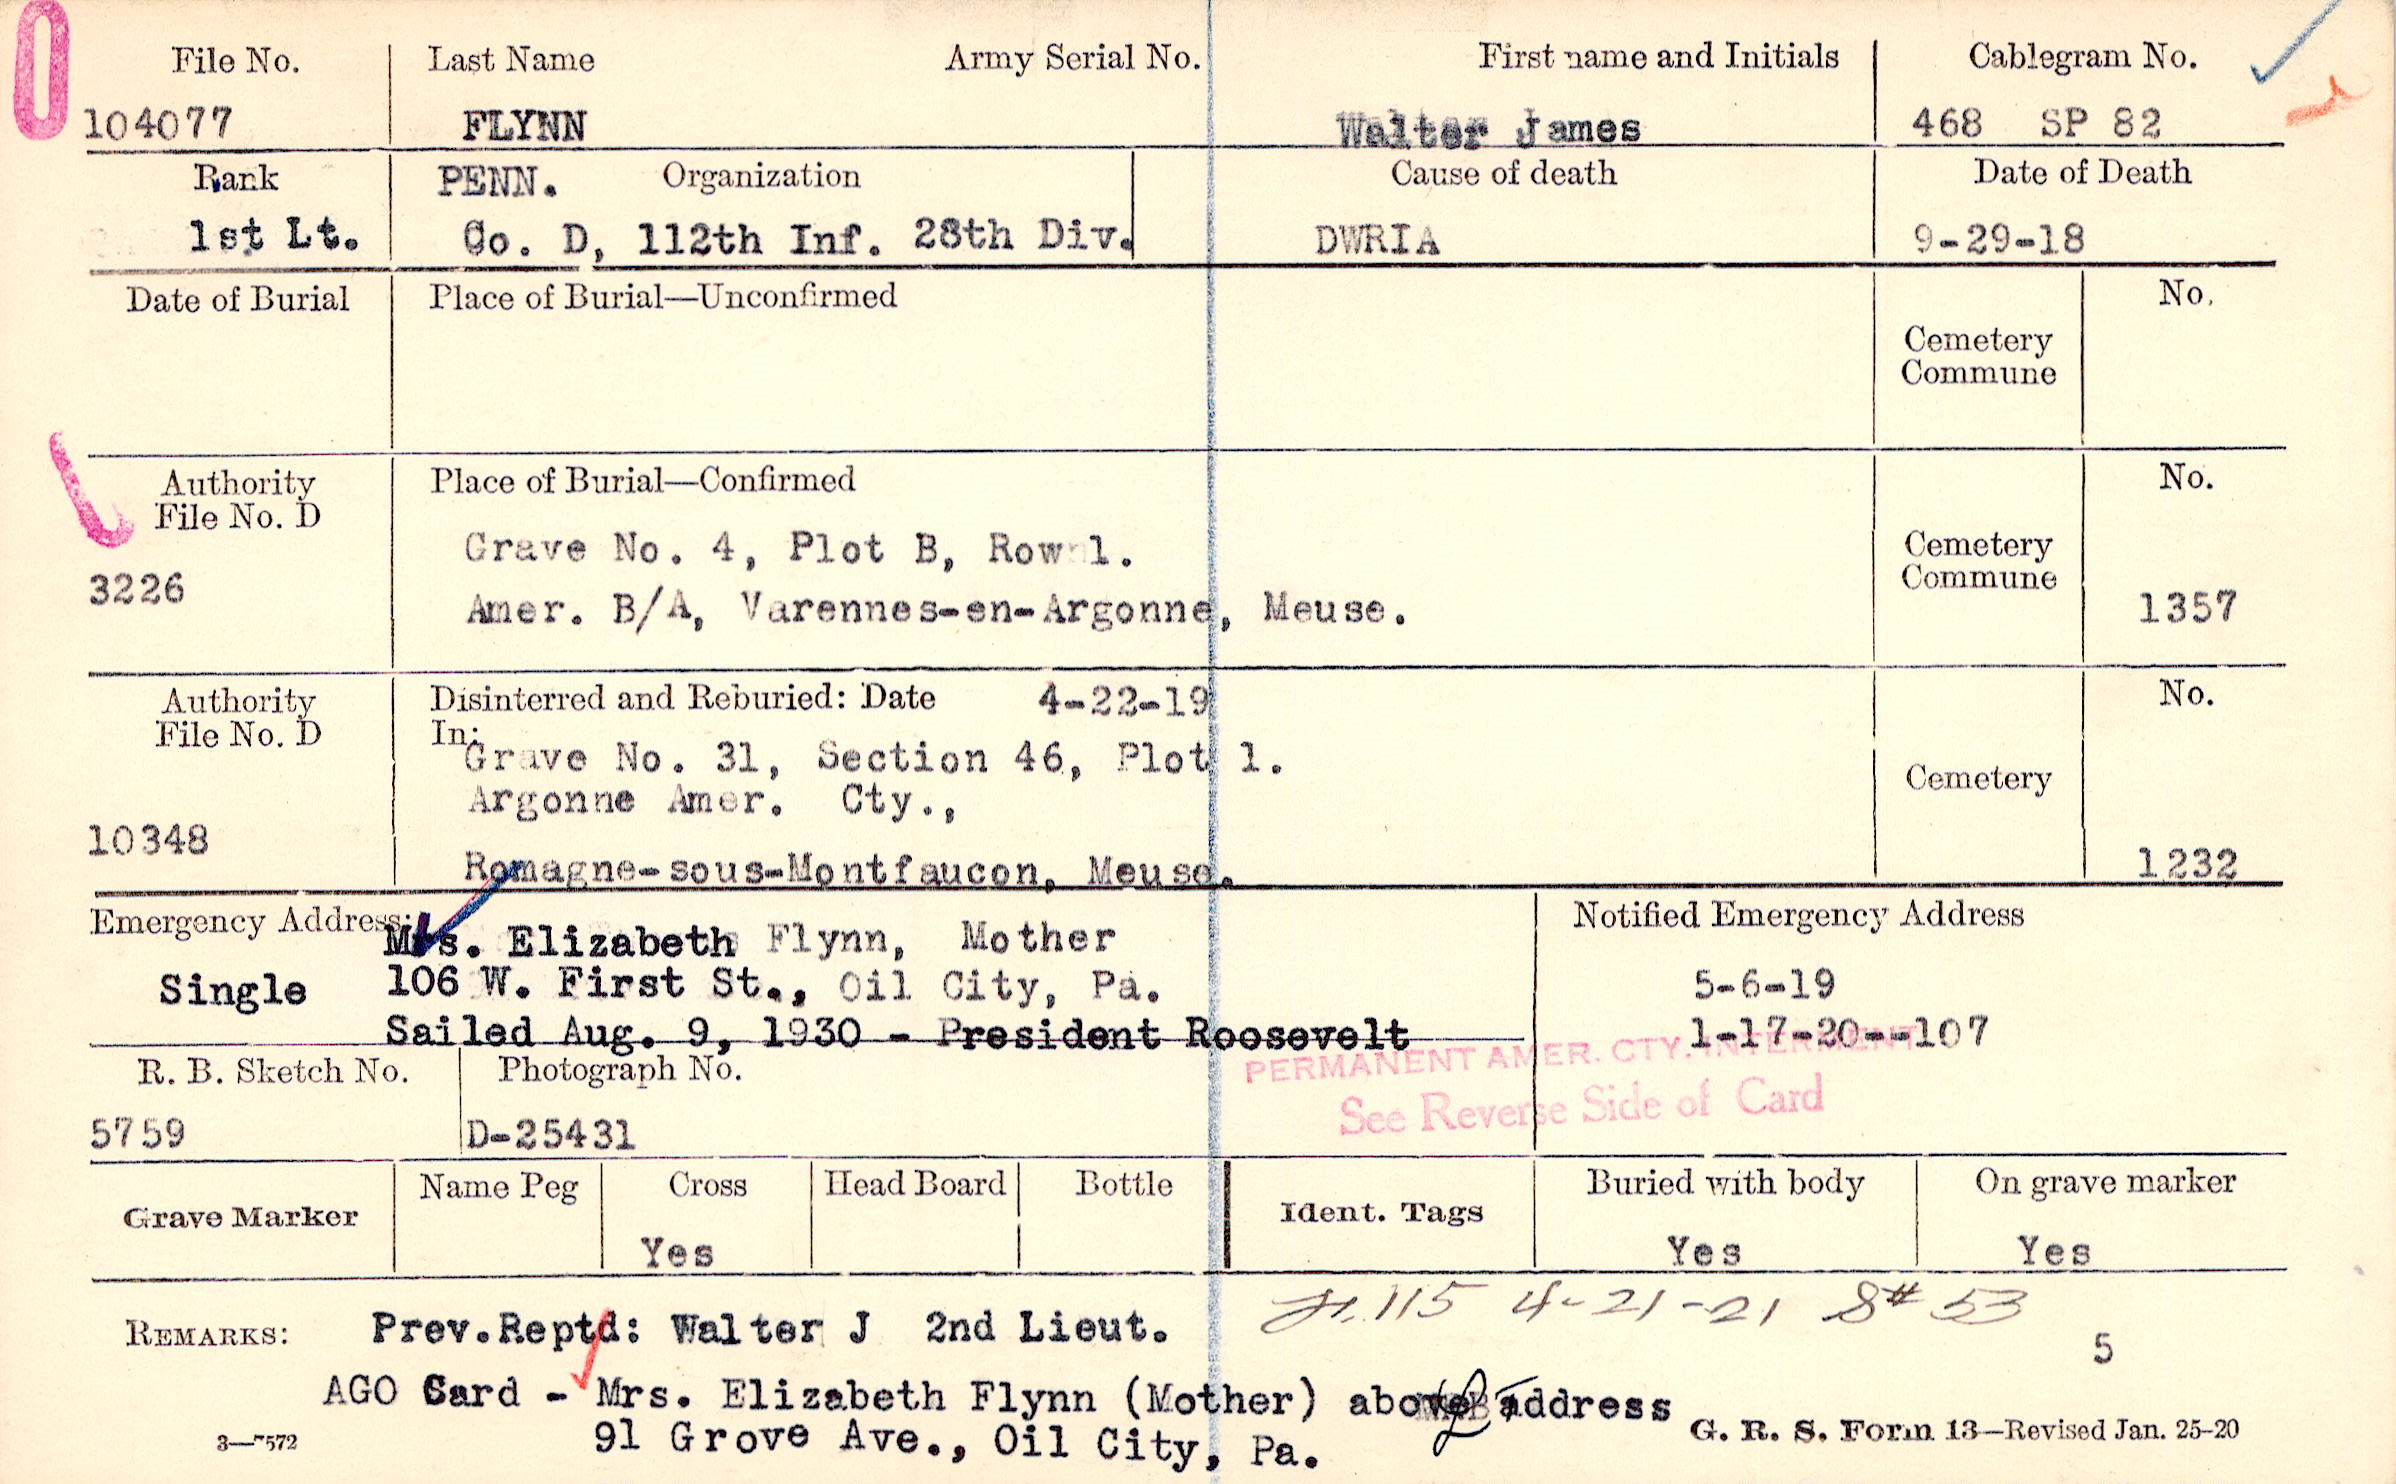 File No. Last Name Army Serial No. First name and Initials Cablegram No.
104077 FLYNN Walter James 468 SP 82
Rank PENN. Organization Cause of death Date of Death
1st Lt. Co. D, 112th Inf. 28th Div. DWRIA 9-29-18
Date of Burial Place of Burial—Unconfirmed No.
Cemetery
Commune
Authority Place of Burial—Confirmed No.
File No. D
Grave No. 4, Plot B, Row 1. Cemetery
Commune
3226 Amer. B/A, Varennes-en-Argonne, Meuse. 1357
Authority Disinterred and Reburied: Date 4-22-19 No.
File No. D In:
Grave No. 31, Section 46, Plot 1.
Argonne Amer. Cty., Cemetery
10348
Romagne-sous-Montfaucon, Meuse. 1232
Emergency Address: Notified Emergency Address
Mrs. Elizabeth Flynn, Mother
Single 106 W. First St., Oil City, Pa. 5-6-19
Sailed Aug. 9, 1930 - President Roosevelt 1-17-20--107
PERMANENT AMER. CTY. INTERMENT
See Reverse Side of Card
R. B. Sketch No. Photograph No.
5759 D-25431
Grave Marker Name Peg Cross Head Board Bottle Ident. Tags Buried with body On grave marker
Yes Yes Yes
115 4-21-21 S# 53
REMARKS: Prev.Reptd: Walter J 2nd Lieut.
5
AGO Card - Mrs. Elizabeth Flynn (Mother) above address
91 Grove Ave., Oil City, Pa.
3—7572 G. R. S. Form 13—Revised Jan. 25-20